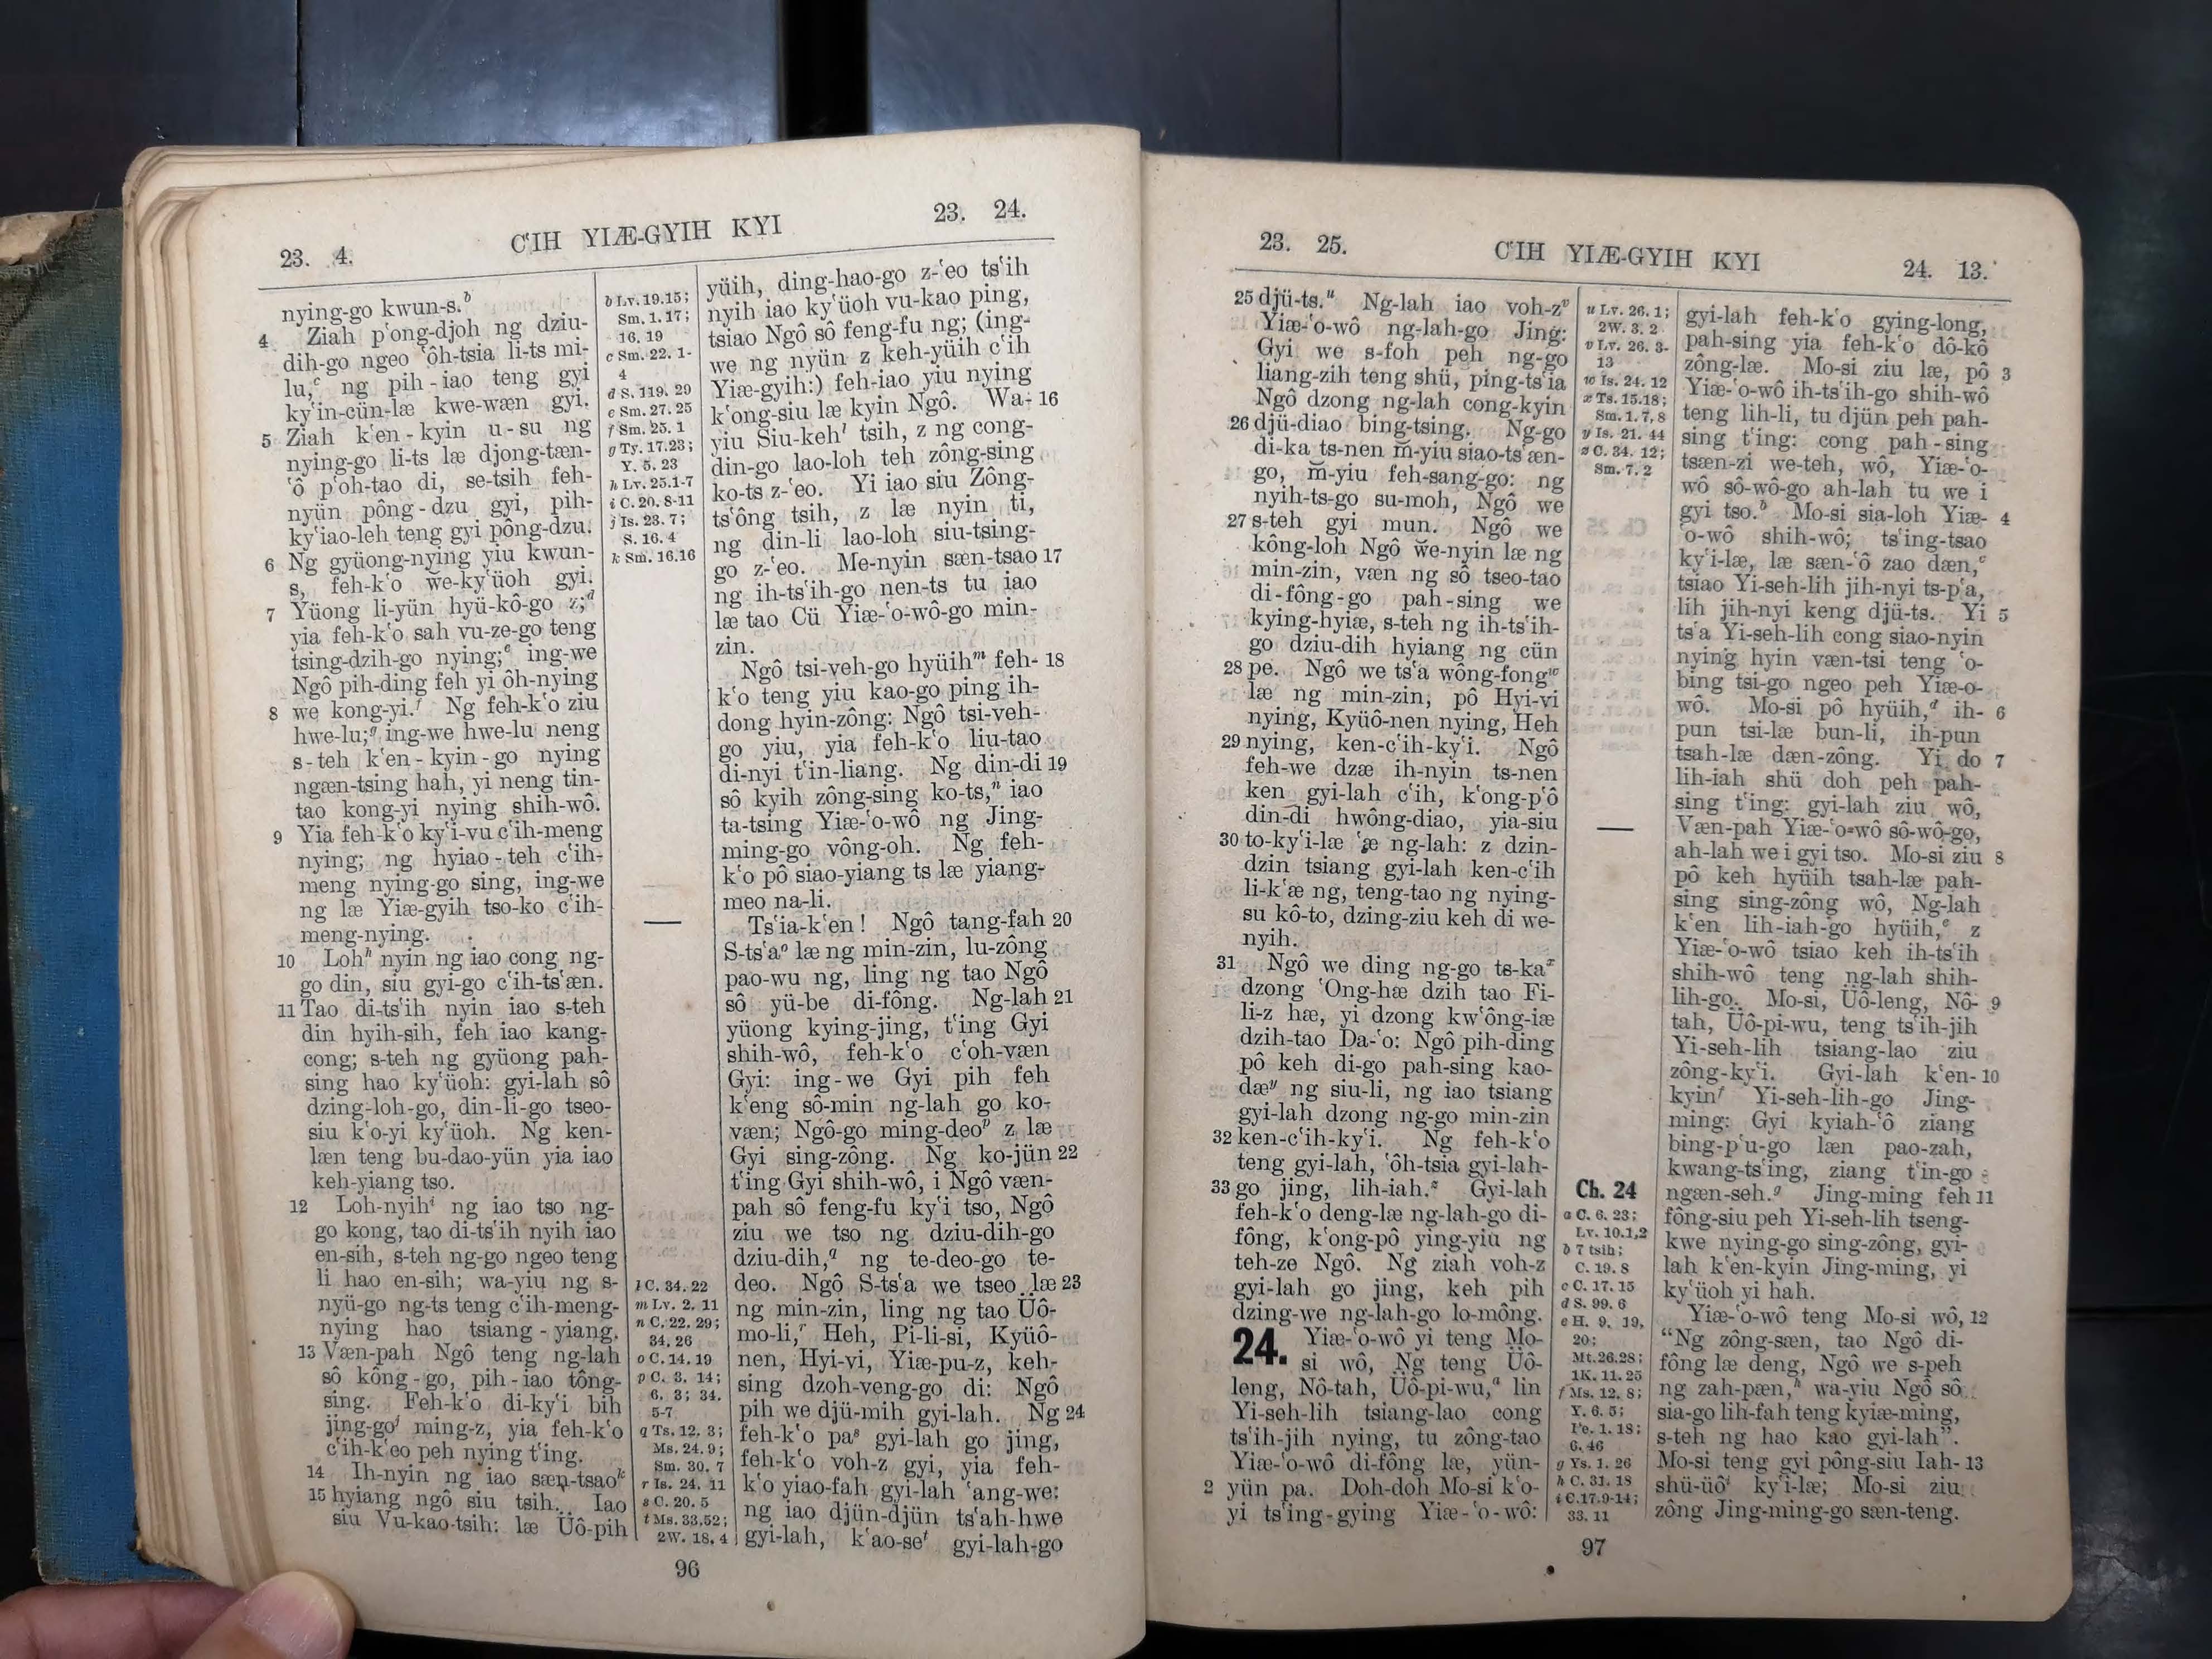 23. 4.
CʻIH YIÆ-GYIH KYI
23. 24.
nying-go kwun-s.ᵇ
4 Ziah pʻong-djoh ng dziu-
dih-go ngeo ʻôh-tsia li-ts mi-
lu,ᶜ ng pih-iao teng gyi
kyʻin-cün-læ kwe-wæn gyi.
5 Ziah kʻen-kyin u-su ng
nying-go li-ts læ djong-tæn-
ʻô pʻoh-tao di, se-tsih feh-
nyün pông-dzu gyi, pih-
kyʻiao-leh teng gyi pông-dzu.
6 Ng gyüong-nying yiu kwun-
s, feh-kʻo w̆e-kyʻüoh gyi.
7 Yüong li-yün hyü-kô-go z;ᵈ
yia feh-kʻo sah vu-ze-go teng
tsing-dzih-go nying;ᵉ ing-we
Ngô pih-ding feh yi ôh-nying
8 we kong-yi.ᶠ Ng feh-kʻo ziu
hwe-lu;ᵍ ing-we hwe-lu neng
s-teh kʻen-kyin-go nying
ngæn-tsing hah, yi neng tin-
tao kong-yi nying shih-wô.
9 Yia feh-kʻo kyʻi-vu cʻih-meng
nying; ng hyiao-teh cʻih-
meng nying-go sing, ing-we
ng læ Yiæ-gyih tso-ko cʻih-
meng-nying.
10 Lohʰ nyin ng iao cong ng-
go din, siu gyi-go cʻih-tsʻæn.
11 Tao di-tsʻih nyin iao s-teh
din hyih-sih, feh iao kang-
cong; s-teh ng gyüong pah-
sing hao kyʻüoh: gyi-lah sô
dzing-loh-go, din-li-go tseo-
siu kʻo-yi kyʻüoh. Ng ken-
læn teng bu-dao-yün yia iao
keh-yiang tso.
12 Loh-nyihⁱ ng iao tso ng-
go kong, tao di-tsʻih nyih iao
en-sih, s-teh ng-go ngeo teng
li hao en-sih; wa-yiu ng s-
nyü-go ng-ts teng cʻih-meng-
nying hao tsiang-yiang.
13 Væn-pah Ngô teng ng-lah
sô kông-go, pih-iao tông-
sing. Feh-kʻo di-kyʻi bih
jing-goʲ ming-z, yia feh-kʻo
cʻih-kʻeo peh nying tʻing.
14 Ih-nyin ng iao sæn-tsaoᵏ
15 hyiang ngô siu tsih. Iao
siu Vu-kao-tsih: læ Üô-pih
b Lv. 19.15;
Sm. 1.17;
16. 19
c Sm. 22. 1-
4
d S. 119. 29
e Sm. 27. 25
f Sm. 25. 1
g Ty. 17.23;
Y. 5. 23
h Lv. 25.1-7
i C. 20. 8-11
j Is. 23. 7;
S. 16. 4
k Sm. 16.16
l C. 34. 22
m Lv. 2. 11
n C. 22. 29;
34. 26
o C. 14. 19
p C. 3. 14;
6. 3; 34.
5-7
q Ts. 12. 3;
Ms. 24. 9;
Sm. 30. 7
r Is. 24. 11
s C. 20. 5
t Ms. 33.52;
2W. 18. 4
yüih, ding-hao-go z-ʻeo tsʻih
nyih iao kyʻüoh vu-kao ping,
tsiao Ngô sô feng-fu ng; (ing-
we ng nyün z keh-yüih cʻih
Yiæ-gyih:) feh-iao yiu nying
kʻong-siu læ kyin Ngô. Wa- 16
yiu Siu-kehˡ tsih, z ng cong-
din-go lao-loh teh zông-sing
ko-ts z-ʻeo. Yi iao siu Zông-
tsʻông tsih, z læ nyin ti,
ng din-li lao-loh siu-tsing-
go z-ʻeo. Me-nyin sæn-tsao 17
ng ih-tsʻih-go nen-ts tu iao
læ tao Cü Yiæ-ʻo-wô-go min-
zin.
Ngô tsi-veh-go hyüihᵐ feh- 18
kʻo teng yiu kao-go ping ih-
dong hyin-zông: Ngô tsi-veh-
go yiu, yia feh-kʻo liu-tao
di-nyi tʻin-liang. Ng din-di 19
sô kyih zông-sing ko-ts,ⁿ iao
ta-tsing Yiæ-ʻo-wô ng Jing-
ming-go vông-oh. Ng feh-
kʻo pô siao-yiang ts læ yiang-
meo na-li.
Tsʻia-kʻen! Ngô tang-fah 20
S-tsʻaᵒ læ ng min-zin, lu-zông
pao-wu ng, ling ng tao Ngô
sô yü-be di-fông. Ng-lah 21
yüong kying-jing, tʻing Gyi
shih-wô, feh-kʻo cʻoh-væn
Gyi: ing-we Gyi pih feh
kʻeng sô-min ng-lah go ko-
væn; Ngô-go ming-deoᵖ z læ
Gyi sing-zông. Ng ko-jün 22
tʻing Gyi shih-wô, i Ngô væn-
pah sô feng-fu kyʻi tso, Ngô
ziu we tso ng dziu-dih-go
dziu-dih,q ng te-deo-go te-
deo. Ngô S-tsʻa we tseo læ 23
ng min-zin, ling ng tao Üô-
mo-li,ʳ Heh, Pi-li-si, Kyüô-
nen, Hyi-vi, Yiæ-pu-z, keh-
sing dzoh-veng-go di: Ngô
pih we djü-mih gyi-lah. Ng 24
feh-kʻo paˢ gyi-lah go jing,
feh-kʻo voh-z gyi, yia feh-
kʻo yiao-fah gyi-lah ʻang-we:
ng iao djün-djün tsʻah-hwe
gyi-lah, kʻao-seᵗ gyi-lah-go
96
23. 25.
CʻIH YIÆ-GYIH KYI
24. 13.
25 djü-ts.ᵘ Ng-lah iao voh-zᵛ
Yiæ-ʻo-wô ng-lah-go Jing:
Gyi we s-foh peh ng-go
liang-zih teng shü, ping-tsʻia
Ngô dzong ng-lah cong-kyin
26 djü-diao bing-tsing. Ng-go
di-ka ts-nen m̆-yiu siao-tsʻæn-
go, m̆-yiu feh-sang-go: ng
nyih-ts-go su-moh, Ngô we
27 s-teh gyi mun. Ngô we
kông-loh Ngô w̆e-nyin læ ng
min-zin, væn ng sô tseo-tao
di-fông-go pah-sing we
kying-hyiæ, s-teh ng ih-tsʻih-
go dziu-dih hyiang ng cün
28 pe. Ngô we tsʻa wông-fongʷ
læ ng min-zin, pô Hyi-vi
nying, Kyüô-nen nying, Heh
29 nying, ken-cʻih-kyʻi. Ngô
feh-we dzæ ih-nyin ts-nen
ken gyi-lah cʻih, kʻong-pʻô
din-di hwông-diao, yia-siu
30 to-kyʻi-læ ʻæ ng-lah: z dzin-
dzin tsiang gyi-lah ken-cʻih
li-kʻæ ng, teng-tao ng nying-
su kô-to, dzing-ziu keh di we-
nyih.
31 Ngô we ding ng-go ts-kaˣ
dzong ʻOng-hæ dzih tao Fi-
li-z hæ, yi dzong kwʻông-iæ
dzih-tao Da-ʻo: Ngô pih-ding
pô keh di-go pah-sing kao-
dæʸ ng siu-li, ng iao tsiang
gyi-lah dzong ng-go min-zin
32 ken-cʻih-kyʻi. Ng feh-kʻo
teng gyi-lah, ʻôh-tsia gyi-lah-
33 go jing, lih-iah.ᶻ Gyi-lah
feh-kʻo deng-læ ng-lah-go di-
fông, kʻong-pô ying-yiu ng
teh-ze Ngô. Ng ziah voh-z
gyi-lah go jing, keh pih
dzing-we ng-lah-go lo-mông.
24. Yiæ-ʻo-wô yi teng Mo-
si wô, Ng teng Üô-
leng, Nô-tah, Üô-pi-wu,ᵃ lin
Yi-seh-lih tsiang-lao cong
tsʻih-jih nying, tu zông-tao
Yiæ-ʻo-wô di-fông læ, yün-
2 yün pa. Doh-doh Mo-si kʻo-
yi tsʻing-gying Yiæ-ʻo-wô:
u Lv. 26. 1;
2W. 3. 2
v Lv. 26. 3-
13
w Is. 24. 12
x Ts. 15.18;
Sm. 1. 7, 8
y Is. 21. 44
z C. 34. 12;
Sm. 7. 2
Ch. 24
a C. 6. 23;
Lv. 10.1,2
b 7 tsih;
C. 19. 8
c C. 17. 15
d S. 99. 6
e H. 9. 19,
20;
Mt.26.28;
1K. 11. 25
f Ms. 12. 8;
Y. 6. 5;
Pe. 1. 18;
6. 46
g Ys. 1. 26
h C. 31. 18
i C.17.9-14;
33. 11
gyi-lah feh-kʻo gying-long,
pah-sing yia feh-kʻo dô-kô
zông-læ. Mo-si ziu læ, pô 3
Yiæ-ʻo-wô ih-tsʻih-go shih-wô
teng lih-li, tu djün peh pah-
sing tʻing: cong pah-sing
tsæn-zi we-teh, wô, Yiæ-ʻo-
wô sô-wô-go ah-lah tu we i
gyi tso.ᵇ Mo-si sia-loh Yiæ- 4
ʻo-wô shih-wô; tsʻing-tsao
kyʻi-læ, læ sæn-ʻô zao dæn,ᶜ
tsiao Yi-seh-lih jih-nyi ts-pʻa,
lih jih-nyi keng djü-ts. Yi 5
tsʻa Yi-seh-lih cong siao-nyin
nying hyin væn-tsi teng ʻo-
bing tsi-go ngeo peh Yiæ-o-
wô. Mo-si pô hyüih,ᵈ ih- 6
pun tsi-læ bun-li, ih-pun
tsah-læ dæn-zông. Yi do 7
lih-iah shü doh peh pah-
sing tʻing: gyi-lah ziu wô,
Væn-pah Yiæ-ʻo-wô sô-wô-go,
ah-lah we i gyi tso. Mo-si ziu 8
pô keh hyüih tsah-læ pah-
sing sing-zông wô, Ng-lah
kʻen lih-iah-go hyüih,ᵉ z
Yiæ-ʻo-wô tsiao keh ih-tsʻih
shih-wô teng ng-lah shih-
lih-go. Mo-si, Üô-leng, Nô- 9
tah, Üô-pi-wu, teng tsʻih-jih
Yi-seh-lih tsiang-lao ziu
zông-kyʻi. Gyi-lah kʻen- 10
kyinᶠ Yi-seh-lih-go Jing-
ming: Gyi kyiah-ʻô ziang
bing-pʻu-go læn pao-zah,
kwang-tsʻing, ziang tʻin-go
ngæn-seh.ᵍ Jing-ming feh 11
fông-siu peh Yi-seh-lih tseng-
kwe nying-go sing-zông, gyi-
lah kʻen-kyin Jing-ming, yi
kyʻüoh yi hah.
Yiæ-ʻo-wô teng Mo-si wô, 12
“Ng zông-sæn, tao Ngô di-
fông læ deng, Ngô we s-peh
ng zah-pæn,ʰ wa-yiu Ngô sô
sia-go lih-fah teng kyiæ-ming,
s-teh ng hao kao gyi-lah”.
Mo-si teng gyi pông-siu Iah- 13
shü-üôⁱ kyʻi-læ; Mo-si ziu
zông Jing-ming-go sæn-teng.
97